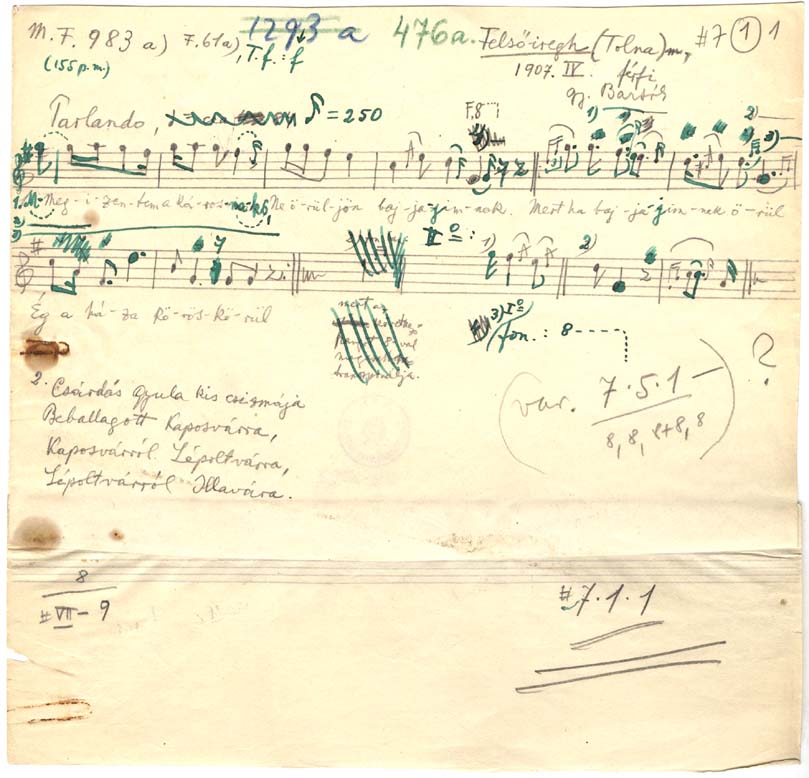 M. F. 983 a) F. 61a) 1293 a 476a. Felsőiregh (Tolna) m., #7 1 1
(155 p.m.) T. f. : f 1907. IV. férfi
gy. Bartók
Parlando, ♪ = 250 F.8
1) 2) 3)
1. Meg-i-zen-tem a ká-ros-nak, Ne ö-rül-jön baj-ja-jim-nak. Mert ha baj-ja-jim-nak ö-rül
II º: 1) 2)
Ég a há-za kö-rös-kö-rül
mert az
3) I º
fon. : 8
?
2. Csárdás Gyula kis csizmája
Beballagott Kaposvárra,
Kaposvárról Lépoltvárra,
Lépoltvárról Illavára.
(var. 7 · 5 · 1 –
8, 8, 8+8, 8)
8
#VII – 9
#7 · 1 · 1